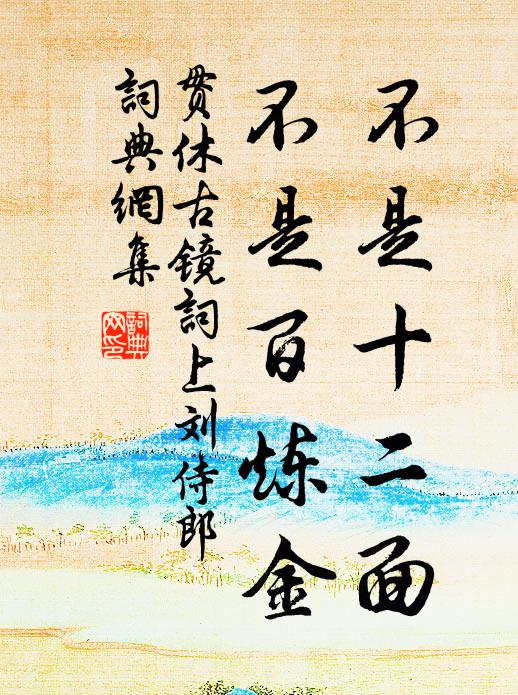 不是十二面
不是百炼金
贯休古镜詞上刘侍郎
詞典網集
詞典
网印